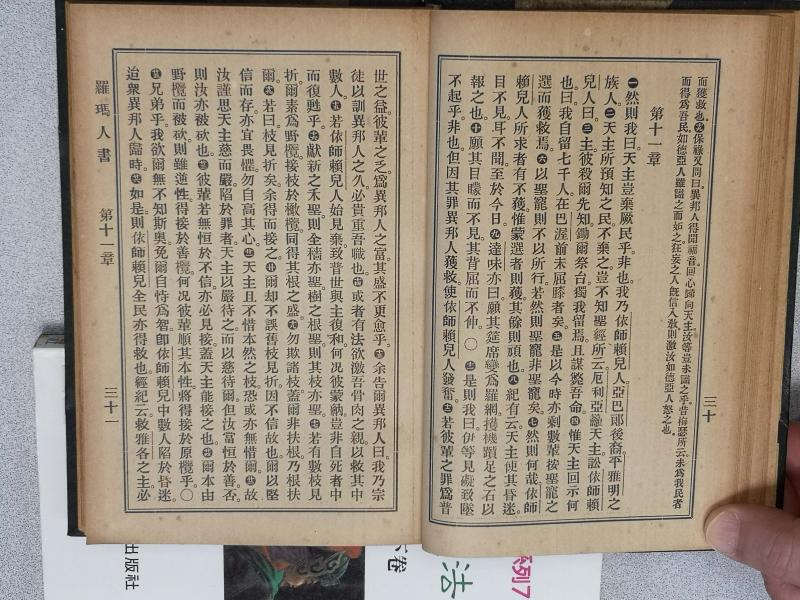 三十
而獲救也。保祿又問曰異邦人得聞福音回心歸向天主汝等豈未識之乎昔梅瑟所云未為我民者
而得為吾民如德亞人雖識之而妬之狂妄之人旣信入敎則激汝如德亞人怒之也。
第十一章
㊀然則我曰天主豈棄厥民乎非也我乃依師賴兒人亞巴郎後裔平雅明之
族人。㊁天主所預知之民不棄之豈不知聖經所云厄利亞籲天主訟依師賴
兒人曰。㊂主彼殺爾先知鋤爾祭台獨我留焉且謀斃吾命。㊃惟天主回示何
也曰我自留七千人在巴渥前未屈膝者矣。㊄是以今時亦剩數輩按聖寵之
選而獲救焉。㊅以聖寵則不以所行若然則聖寵非聖寵矣。㊆然則何哉依師
賴兒人所求者有不獲惟蒙選者則獲其餘則頑也。㊇紀有云天主使其昏迷。
目不見耳不聞至於今日。㊈達味亦曰願其筵席變為羅網機躓足之石以
報之也。㊉願其目矇而不見其背屈而不伸。〇是則我曰伊等見礙致墜
不起乎非也但因其罪異邦人獲救使依師賴兒人發奮。若彼輩之罪為普
世之益彼輩之乏為異邦人之富其盛不更愈乎。余告爾異邦人曰我乃宗
徒以訓異邦人之久必貴重吾職也。或者有法欲激吾骨肉之親以救其中
數人。若依師賴兒人始見棄致普世與主復和何况彼蒙納豈非自死者中
而復甦乎。獻新之禾聖則全穡亦聖樹之根聖則其枝亦聖。若有數枝見
折爾素為野欖接枝於橄欖同得其根之盛。勿欺諸枝蓋爾非扶根乃根扶
爾。若曰枝見折矣余得而接之。爾却不誤舊枝見折因不信故也爾以堅
信而存亦宜畏懼勿自高其心。天主且不惜本然之枝恐或亦無惜爾。故
汝謹思天主慈而嚴陷於罪者天主以嚴待之而以慈待爾但汝當恒於善否。
則汝亦被砍也。彼輩若無恒於不信亦必見接蓋天主能接之也。爾本由
野欖而被砍則雖逆性得接於善欖何况彼輩順其本性將得接於原欖乎。〇
兄弟乎我欲爾無不知斯奧免爾自恃為智卽依師賴兒中數人陷於昏迷。
迨衆異邦人歸時。如是則依師賴兒全民亦得救也經紀云救雅各之主必
羅瑪人書 第十一章 三十一
出版社
卷
系列7
法